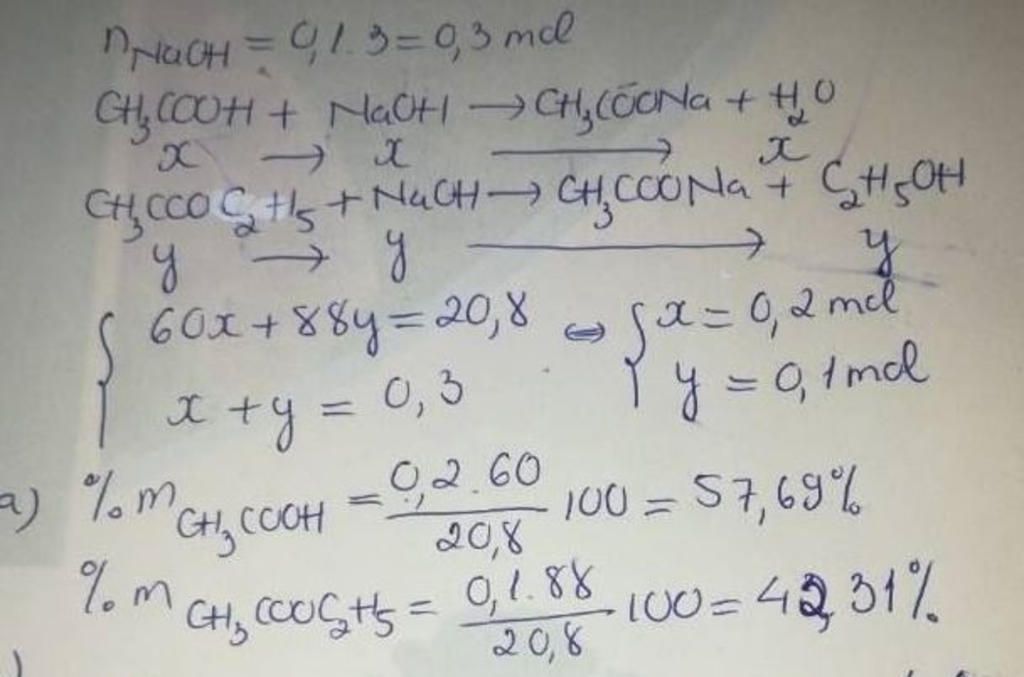 n NaOH = 0,1.3 = 0,3 mol
CH₃COOH + NaOH → CH₃COONa + H₂O
x → x → x
CH₃COOC₂H₅ + NaOH → CH₃COONa + C₂H₅OH
y → y → y
{ 60x + 88y = 20,8 ⇔ { x = 0,2 mol
x + y = 0,3 y = 0,1 mol
a) % m CH₃COOH = 0,2.60 / 20,8 100 = 57,69%
% m CH₃COOC₂H₅ = 0,1.88 / 20,8 100 = 42,31%